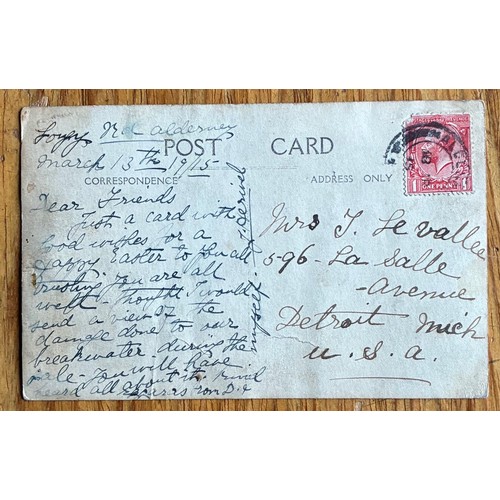 Alderney
POST CARD
March 13th 1915
CORRESPONDENCE
ADDRESS ONLY
Dear Friends
Just a card with
Good wishes for a
Happy Easter to you all
trusting you are all
well - thought I would
send a view of the
damage done to our
breakwater during the
gale - you will have
heard all about the
from
myself
Mrs J. Le Vallee
596 - La Salle
- Avenue
Detroit Mich
U.S.A.
1 ONE PENNY 1